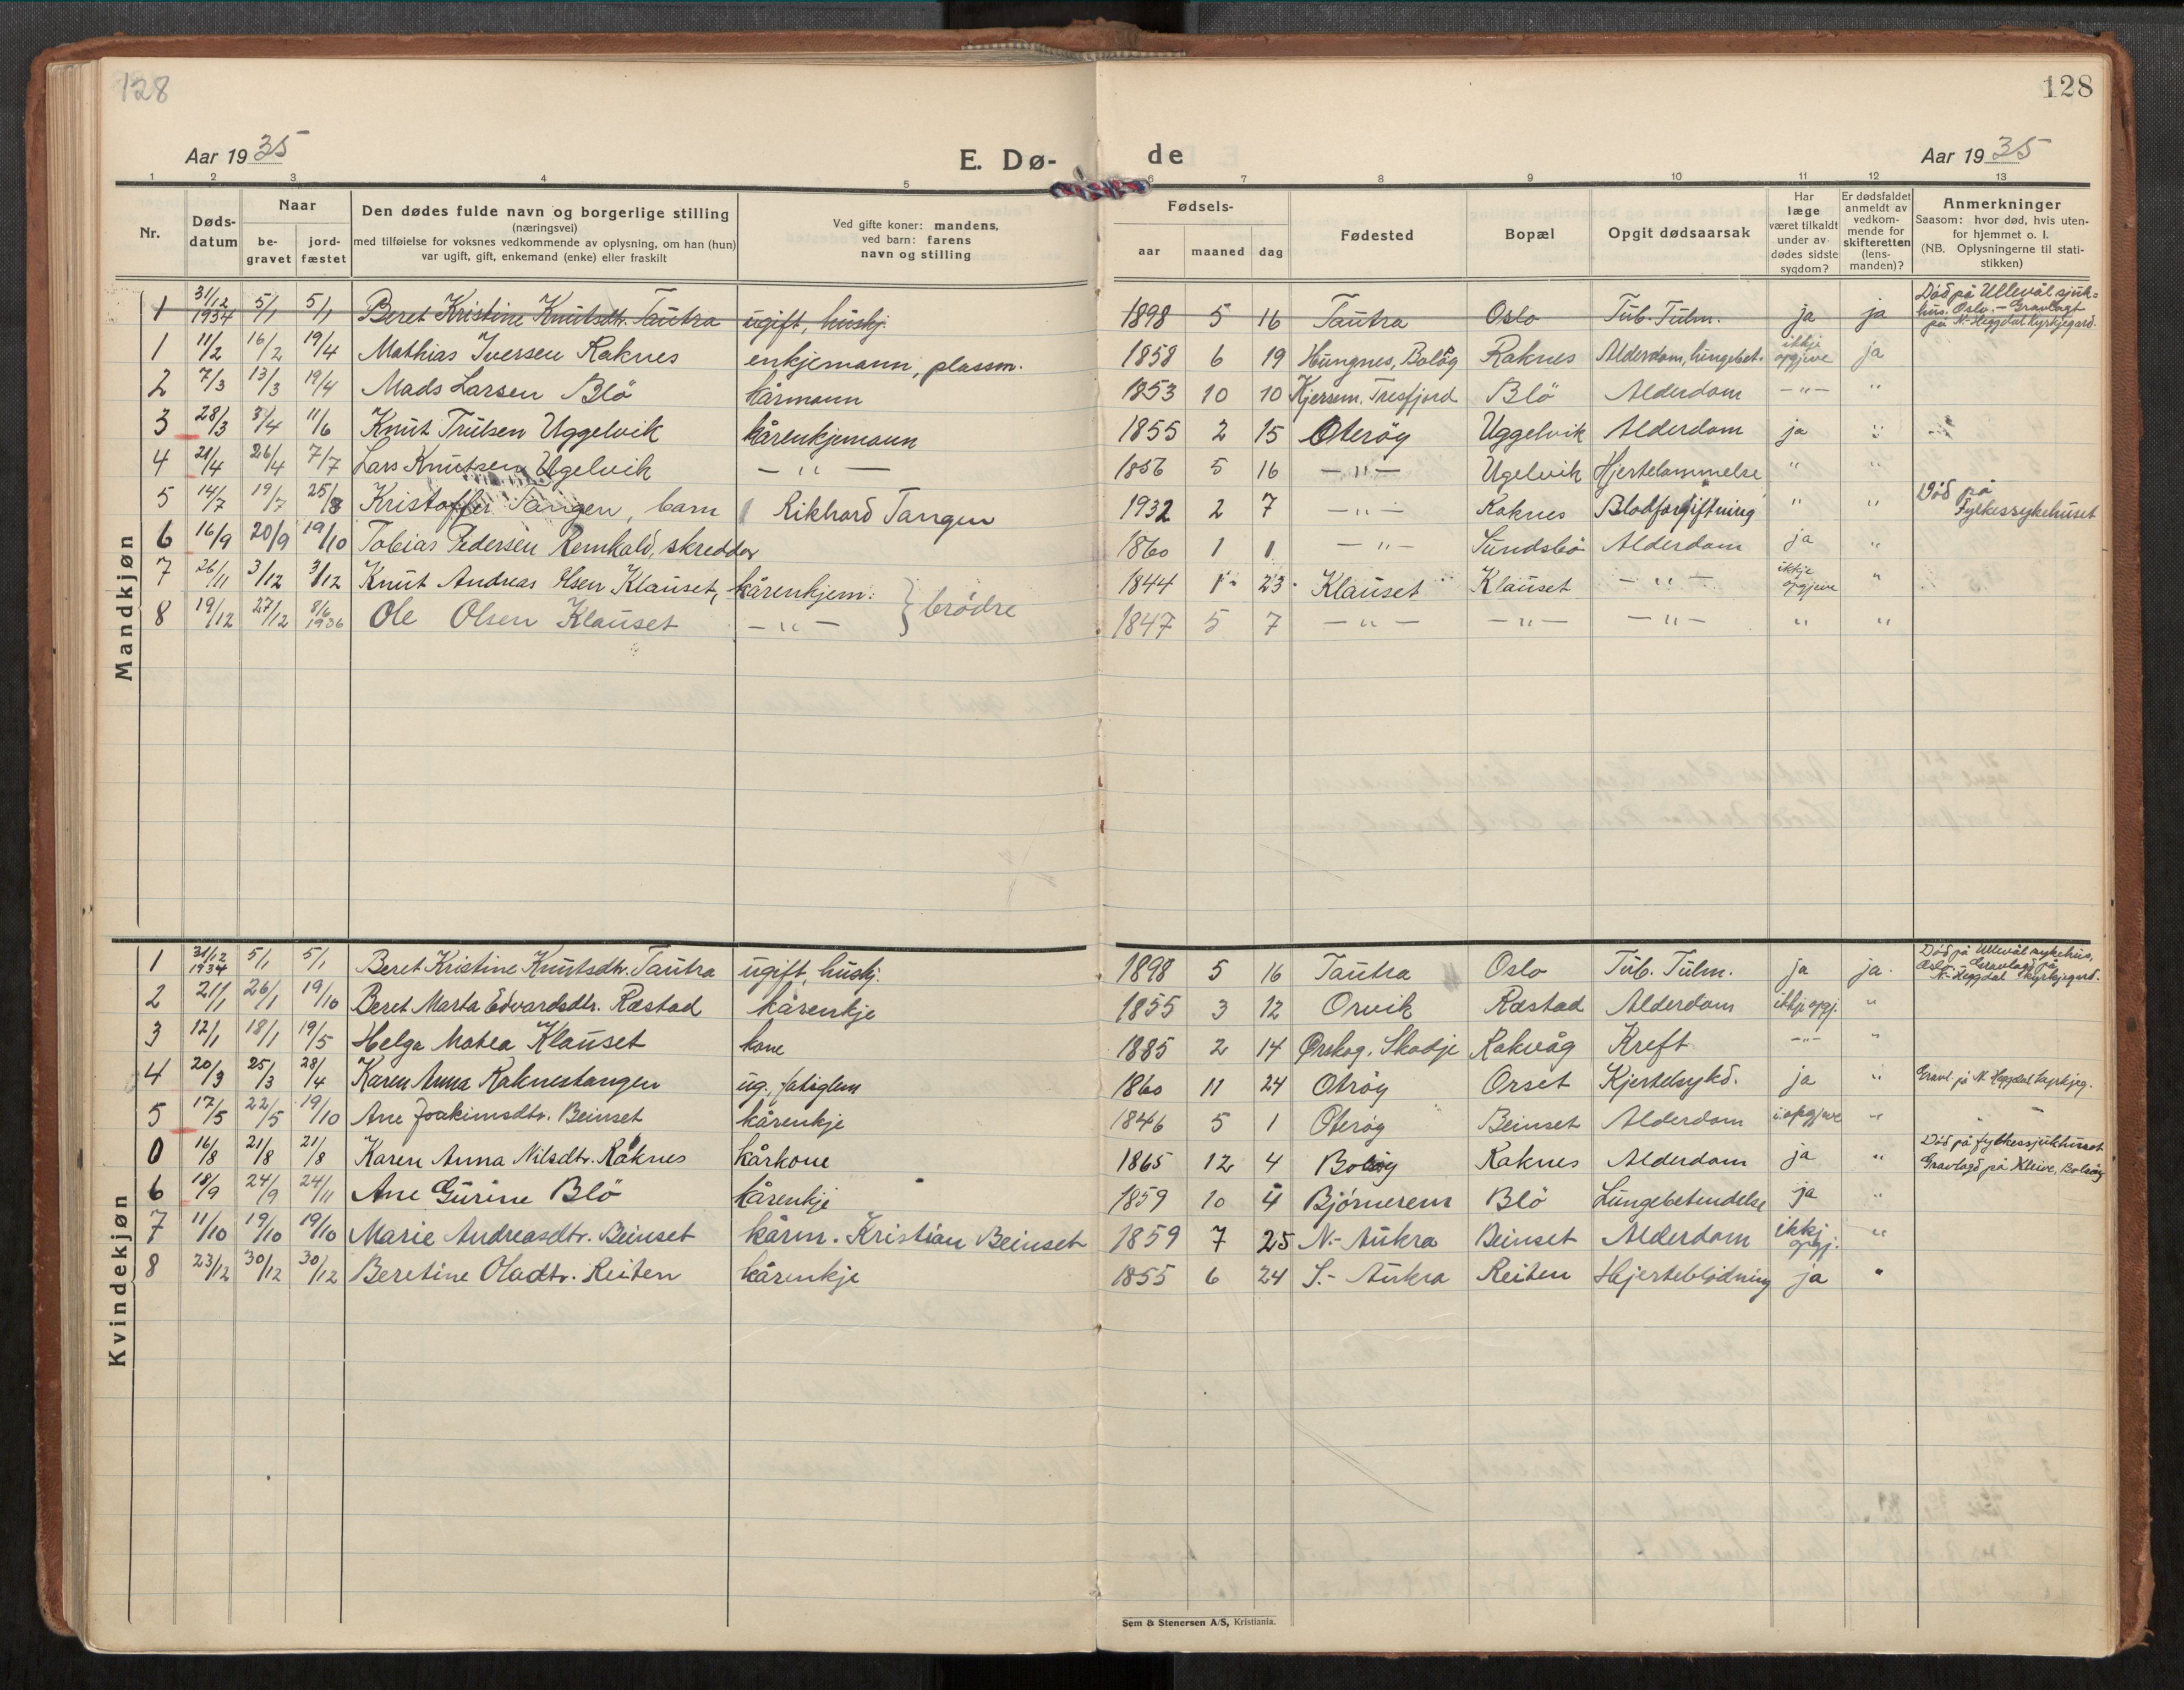 128
128
Aar 1935
E. Dø-
de
Aar 1935
1 2 3 4 5 6 7 8 9 10 11 12 13
Nr.
Døds-
datum
Naar
be-
gravet
jord-
fæstet
Den dødes fulde navn og borgerlige stilling
(næringsvei)
med tilføielse for voksnes vedkommende av oplysning, om han (hun)
var ugift, gift, enkemand (enke) eller fraskilt
Ved gifte koner: mandens,
ved barn: farens
navn og stilling
Fødsels-
aar maaned dag
Fødested
Bopæl
Opgit dødsaarsak
Har
læge
været tilkaldt
under av-
dødes sidste
sygdom?
Er dødsfaldet
anmeldt av
vedkom-
mende for
skifteretten
(lens-
manden)?
Anmerkninger
Saasom: hvor død, hvis uten-
for hjemmet o. l.
(NB. Oplysningerne til stati-
stikken)
Mandkjøn
1 31/12 1934 5/1 5/1 Beret Kristine Knutsdtr. Tautra ugift, hushj. 1898 5 16 Tautra Oslo Tub. Tulm. ja ja Död på Ullevål sjuk=
hus. Oslo. - Gravlagt
på N-Heggdal kyrkjegard.
1 11/2 16/2 19/4 Mathias Iversen Raknes enkjemann, plassm. 1858 6 19 Hungnes, Bolsöy Raknes Alderdom, lungebet. ikkje opgjeve ja
2 7/3 13/3 19/4 Mads Larsen Blö kårmann 1853 10 10 Kjersem, Tresfjord Blö Alderdom -"- "
3 28/3 3/4 11/6 Knut Trulsen Uggelvik kårenkjemann 1855 2 15 Oteröy Uggelvik Alderdom ja "
4 21/4 26/4 7/7 Lars Knutsen Ugelvik -"- 1856 5 16 -"- Ugelvik Hjertelammelse " "
5 14/7 19/7 25/8 Kristoffer Tangen, barn Rikhard Tangen 1932 2 7 -"- Raknes Blodforgiftning " " Död på
Fylkessykehuset
6 16/9 20/9 19/10 Tobias Pedersen Remkald, skreddar 1860 1 1 -"- Sundsbö Alderdom ja "
7 26/11 3/12 3/12 Knut Andreas Olsen Klauset, kårenkjem. 1844 1 23 Klauset Klauset -"- ikkje opgjeve "
8 19/12 27/12 8/6 1936 Ole Olsen Klauset -"- } brödre 1847 5 7 -"- -"- -"- " "
Kvindekjøn
1 31/12 1934 5/1 5/1 Beret Kristine Knutsdtr. Tautra ugift, hushj. 1898 5 16 Tautra Oslo Tub. Tulm. ja ja. Död på Ullevål sykehus,
Oslo. Gravlagd på
N-Heggdal kyrkjegard.
2 21/1 26/1 19/10 Beret Marta Edvardsdtr. Ræstad kårenkje 1855 3 12 Orvik Ræstad Alderdom ikkje opgj. "
3 12/1 18/1 19/5 Helga Matea Klauset kone 1885 2 14 Ørskog, Skodje Rakvåg Kreft -"- "
4 20/3 25/3 28/4 Karen Anna Raknestangen ug., fatiglem 1860 11 24 Otröy Orset Kjertelsykd. ja " Gravl. på N. Heggdal kyrkjeg.
5 17/5 22/5 19/10 Ane Joakimsdtr. Beinset kårenkje 1846 5 1 Oteröy Beinset Alderdom i. opgjeve "
0 16/8 21/8 21/8 Karen Anna Nilsdtr. Raknes kårkone 1865 12 4 Bolsöy Raknes Alderdom ja " Död på fylkessjukhuset
Gravlagd på Kleive, Bolsöy
6 18/9 24/9 24/11 Ane Gurine Blö kårenkje 1859 10 4 Bjørnerem Blö Lungebetendelse ja "
7 11/10 19/10 19/10 Marie Andreasdtr. Beinset kårm. Kristian Beinset 1859 7 25 N.-Aukra Beinset Alderdom ikkj opgj. "
8 23/12 30/12 30/12 Beretine Oladtr. Reiten kårenkje 1855 6 24 S.-Aukra Reiten Hjerteblödning ja "
Sem & Stenersen A/S, Kristiania.